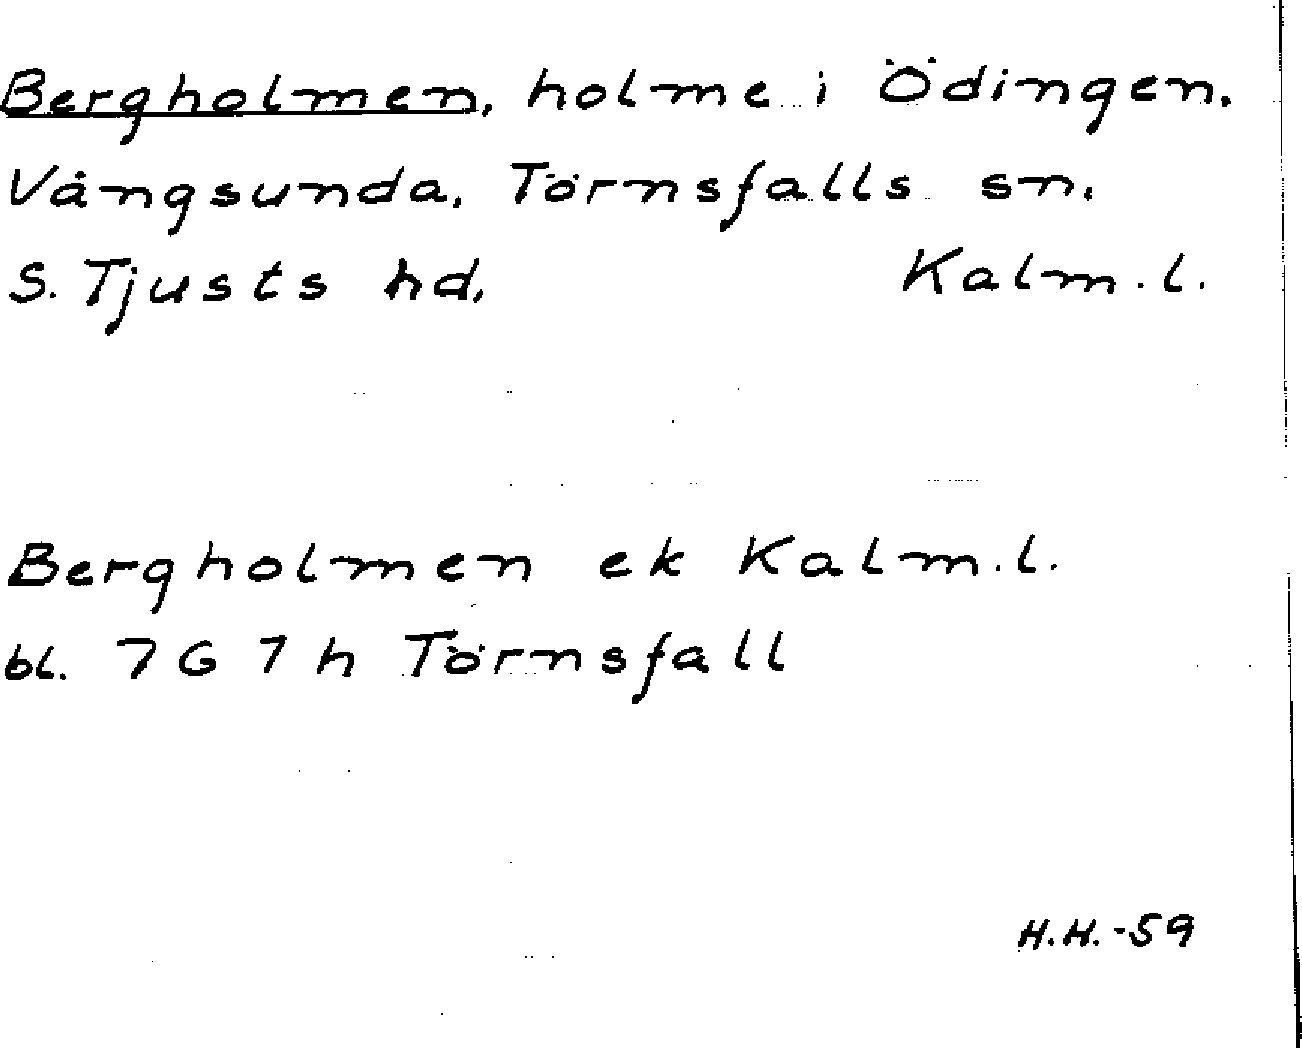 Bergholmen, holme i Ödingen.
Vångsunda, Törnsfalls sn.
S. Tjusts hd. Kalm. l.
Bergholmen ek Kalm. l.
bl. 7 G 7 h Törnsfall
H.H. -59